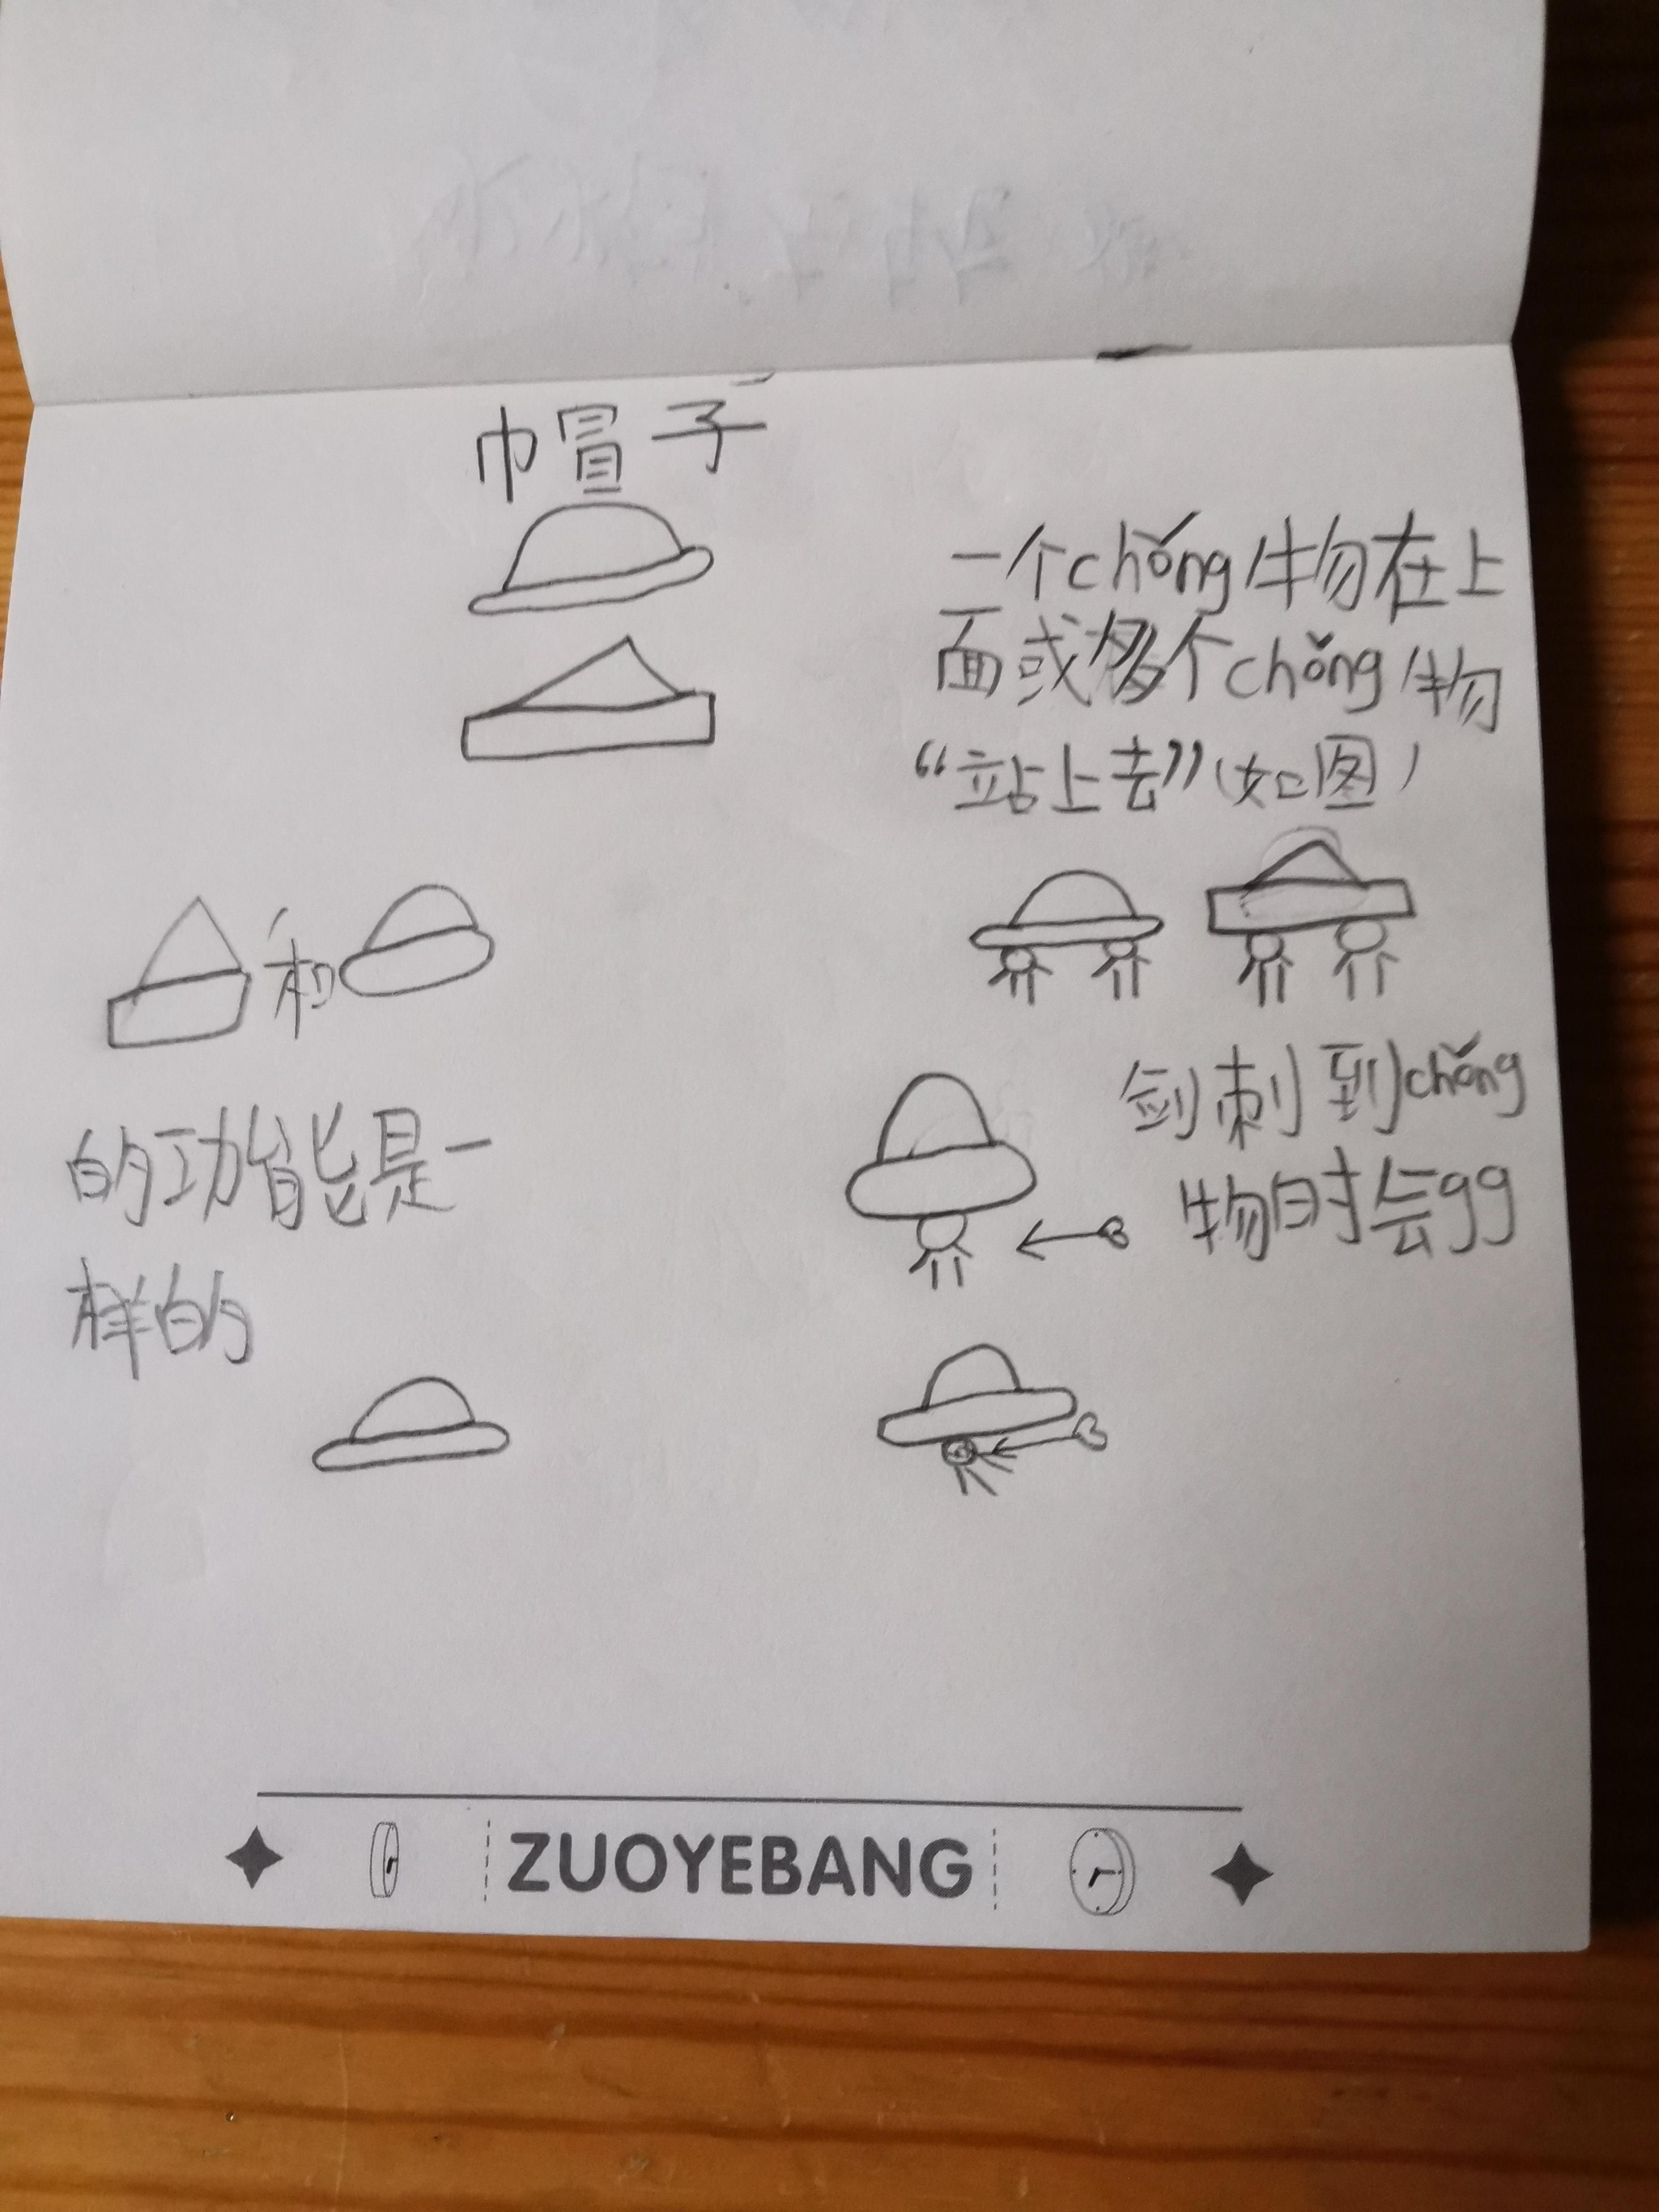 帽子
一个chǒng牜勿在上
面或多个chǒng物
“站上去”(如图)
和
的功能是一
样的
剑刺到chǒng
物时会gg
ZUOYEBANG